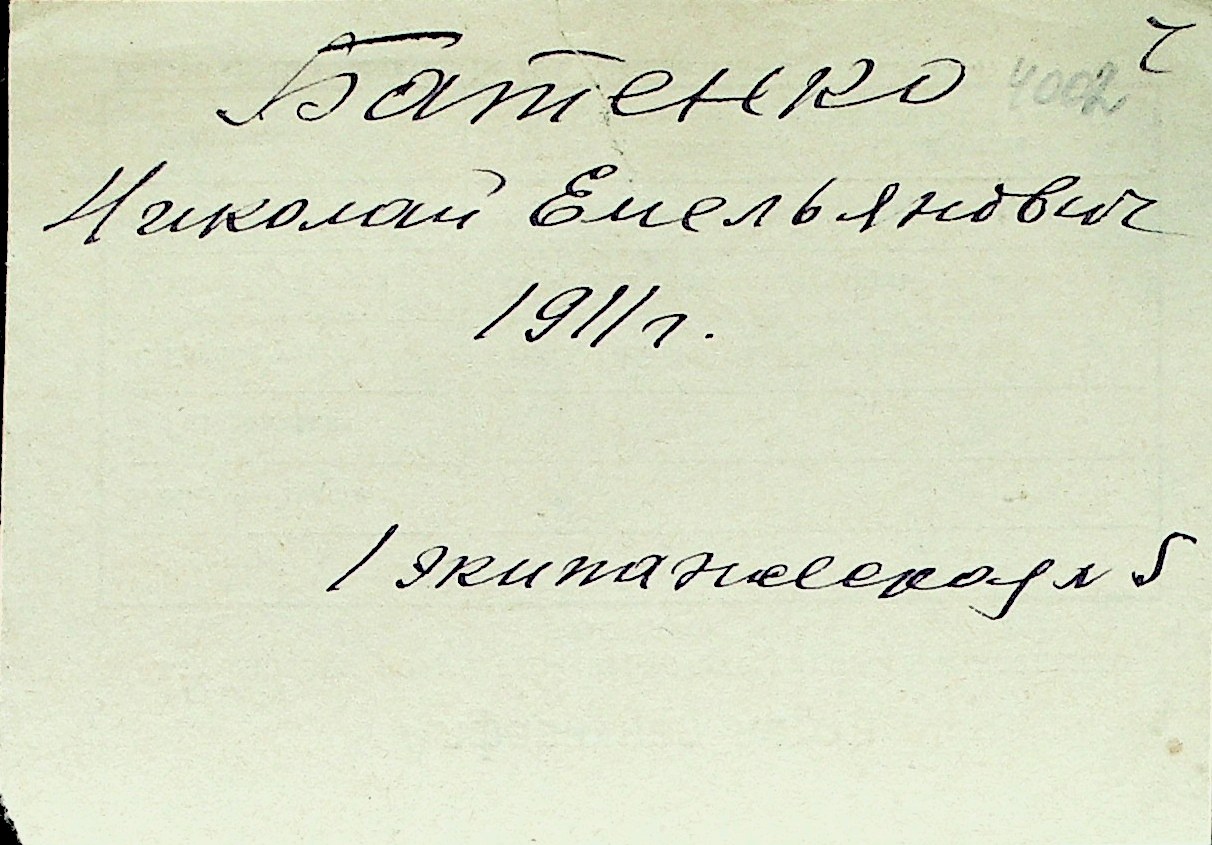 Батенко 4002 ч
Николай Емельянович
1911 г.
1 экипажеская 5